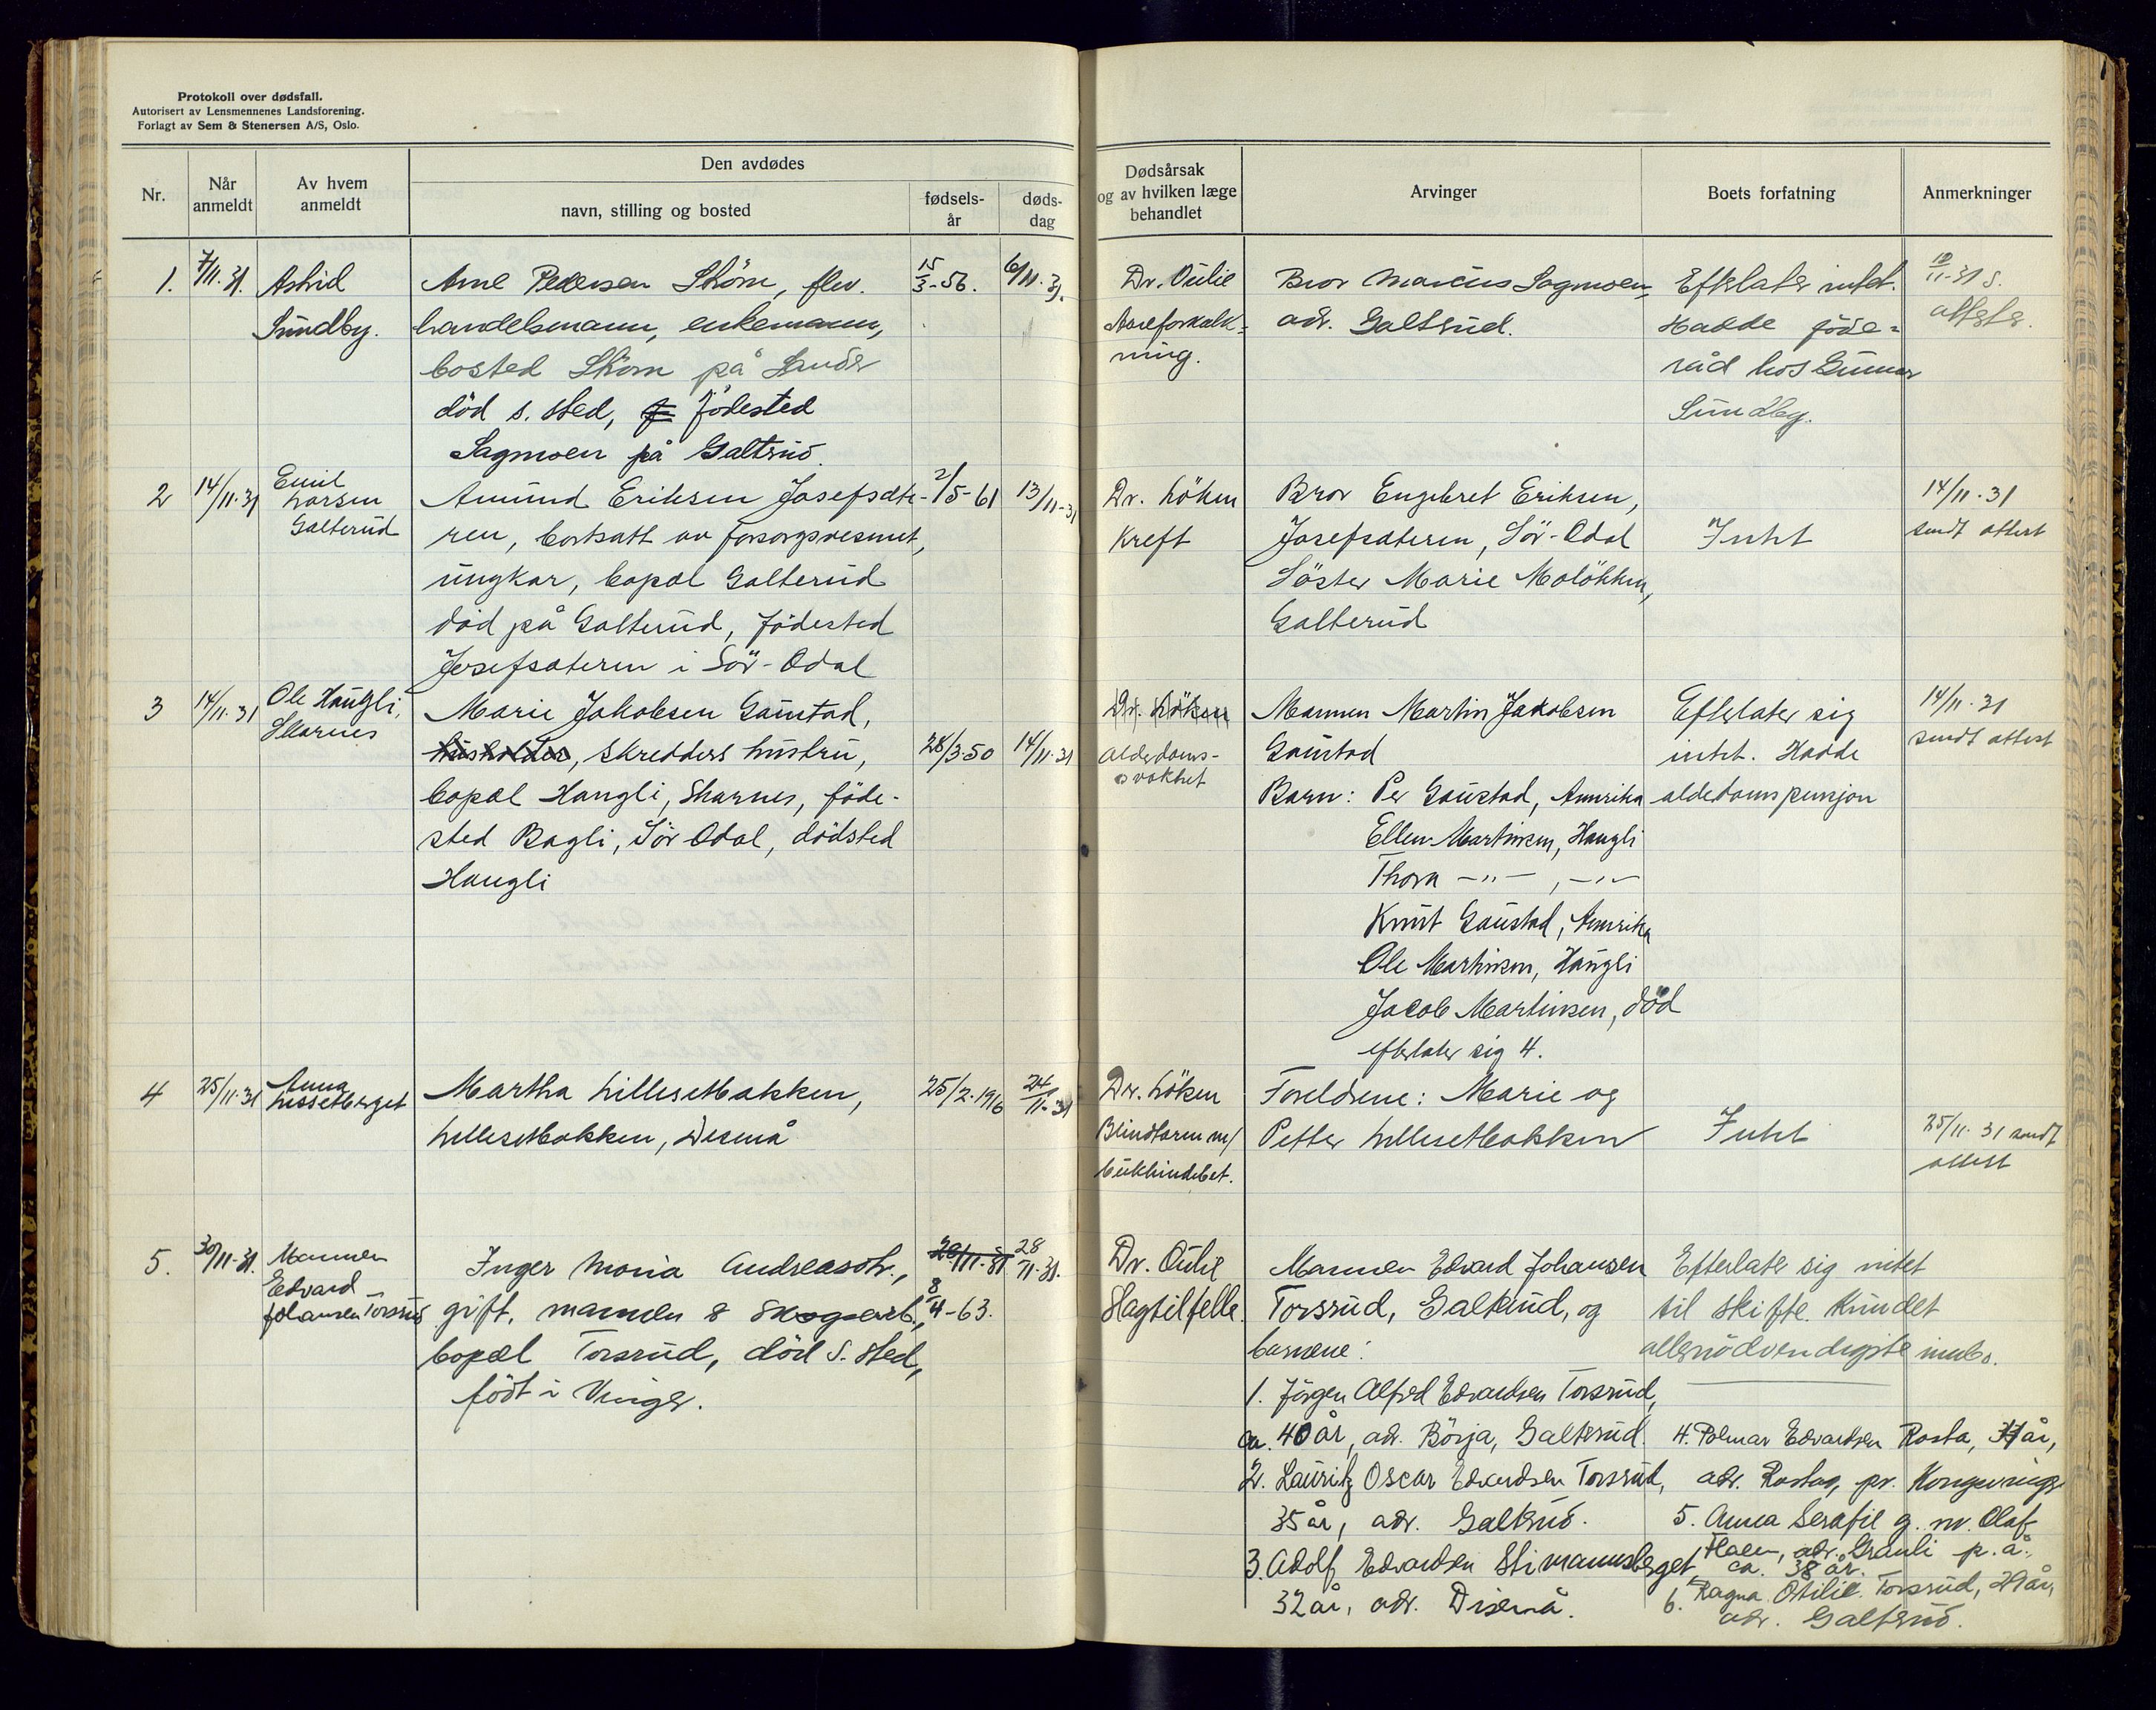 Protokoll over dødsfall.
Autorisert av Lensmennenes Landsforening.
Forlagt av Sem & Stenersen A/S, Oslo.
Nr.
Når anmeldt
Av hvem anmeldt
Den avdødes
navn, stilling og bosted
fødsels-
år
døds-
dag
Dødsårsak
og av hvilken læge
behandlet
Arvinger
Boets forfatning
Anmerkninger
1.
7/11.31.
Astrid
Sundby.
Arne Pedersen Strøm, flev.
handelsmann, enkemann,
bosted Strøm på Sander
död s. sted, födested
Sagmoen på Galterud.
15/3-56.
6/11.31.
Dr. Oulie
Aareforkalk-
ning.
Bror Marius Sagmoen,
adr. Galterud.
Efterlater intet.
Hadde föde-
råd hos Gunnar
Sundby.
12/11-31 s.
attester.
2
14/11.31
Emil
Larsen
Galterud
Amund Eriksen Josefsæte-
ren, bortsatt av forsorgsvesenet,
ungkar, bopæl Galterud
död på Galterud, födested
Josefsæteren i Sör-Odal
2/5-61
13/11-31
Dr. Löken
Kreft
Bror Engebret Eriksen,
Josefsæteren, Sör-Odal
Söster Marie Molökken,
Galterud
Intet
14/11.31
sendt attest
3
14/11.31
Ole Haugli,
Skarnes
Marie Jakobsen Gaustad,
husholder, skredders hustru,
bopæl Haugli, Skarnes, föde-
sted Bagli, Sör Odal, dödsted
Haugli
28/3.50
14/11.31
Dr. Löken
alderdoms-
svakhet
Mannen Martin Jakobsen
Gaustad
Barn: Per Gaustad, Amerika
Ellen Martinsen, Haugli
Thora -"- , -"-
Knut Gaustad, Amerika
Ole Martinsen, Haugli
Jacob Martinsen, död
efterlater sig 4.
Efterlater sig
intet. Hadde
alderdomspensjon
14/11.31
sendt attest
4
25/11.31
Anna
Lissetberget
Martha Lillesetbakken,
Lillesetbakken, Disenå
25/2.1916
24/11-31
Dr. Löken
Blindtarm m/
bukhindebet.
Foreldrene: Marie og
Petter Lillesetbakken
Intet
25/11.31 sendt
attest
5.
30/11-31.
Mannen
Edvard
Johansen Torsrud
Inger Maria Andreasdtr.,
gift, mannen & skogsarb.,
bopæl Torsrud, död s. sted,
födt i Vinger.
28/11-31
8/4-63.
28/11.31.
Dr. Oulie
Slagtilfelle.
Mannen Edvard Johansen
Torsrud, Galterud, og
barnene:
1. Jörgen Alfred Edvardsen Torsrud,
ca. 40 år, adr. Börja, Galterud.
2. Lauritz Oscar Edvardsen Torsrud,
35 år, adr. Galterud.
3. Adolf Edvardsen Stimannsberget,
32 år, adr. Disenå.
Efterlater sig intet
til skifte. Kun det
allernödvendigste innbo.
4. Edvardsen Rasta, år,
adr. Rasta, pr. Kongsvinger
5. Anna Serafie g. m. Olaf
adr. Grauli p.å.,
ca. 38 år.
6. Ragna Otilie Torsrud, år,
adr. Galterud.